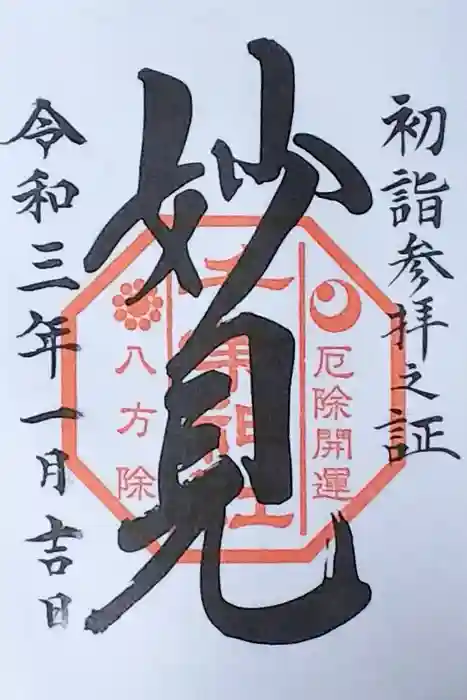 初詣参拝之証
妙見
厄除開運
八方除
令和三年一月吉日